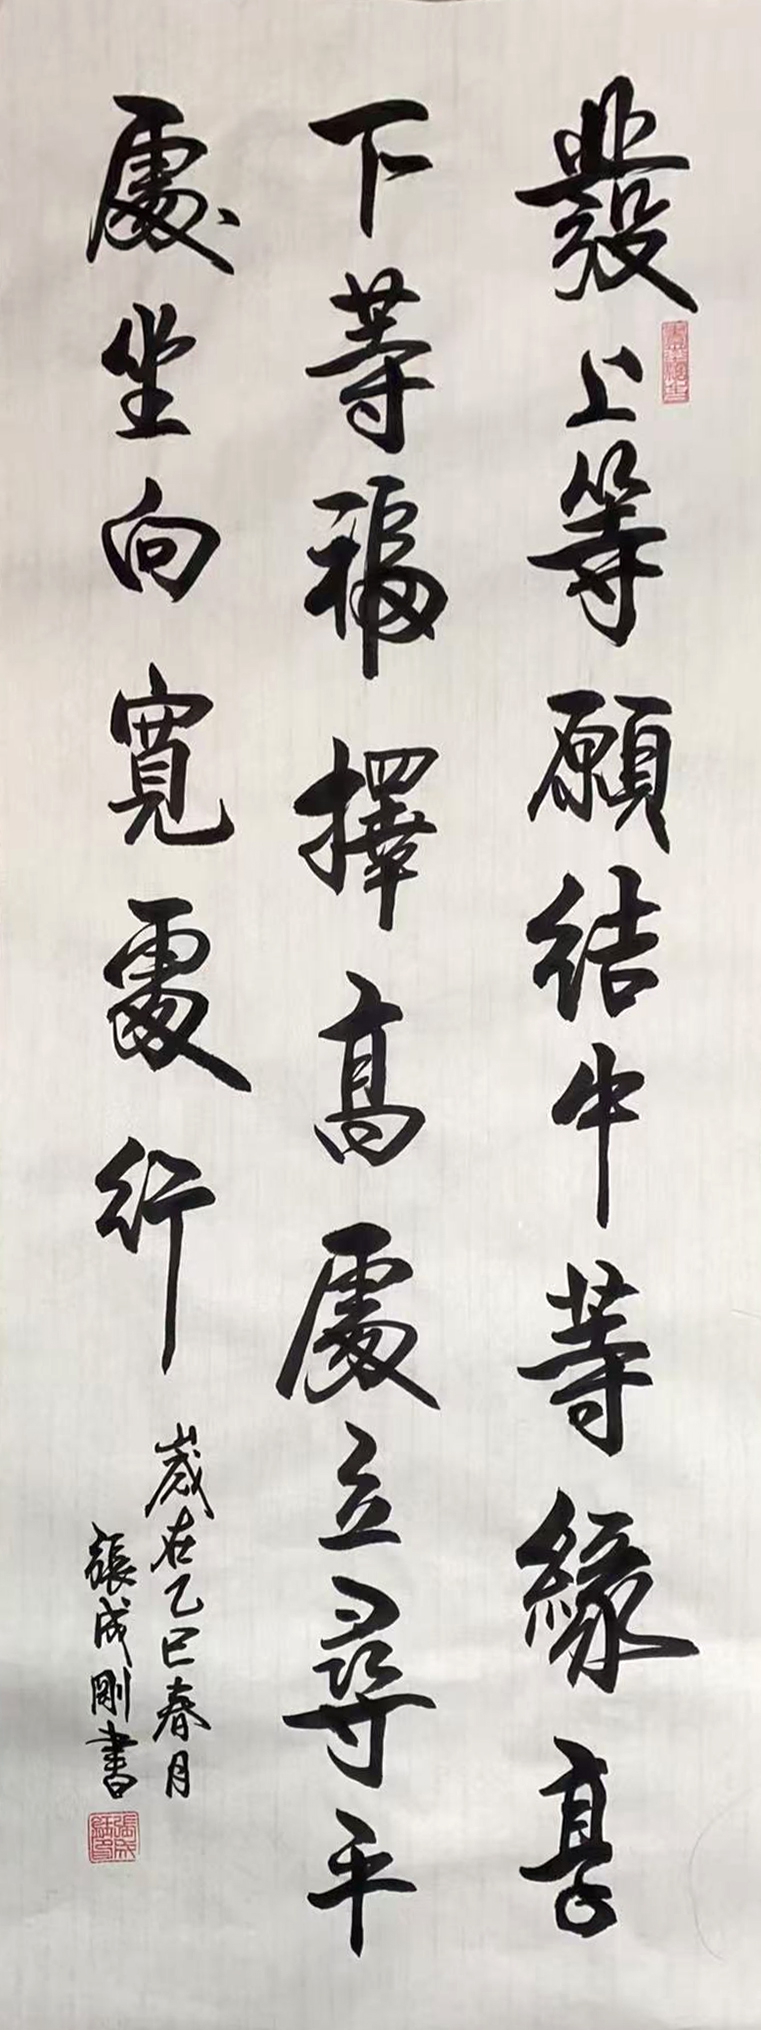 發上等願結中等緣享
下等福擇高處立尋平
處坐向寬處行
歲在乙巳春月
張成剛書